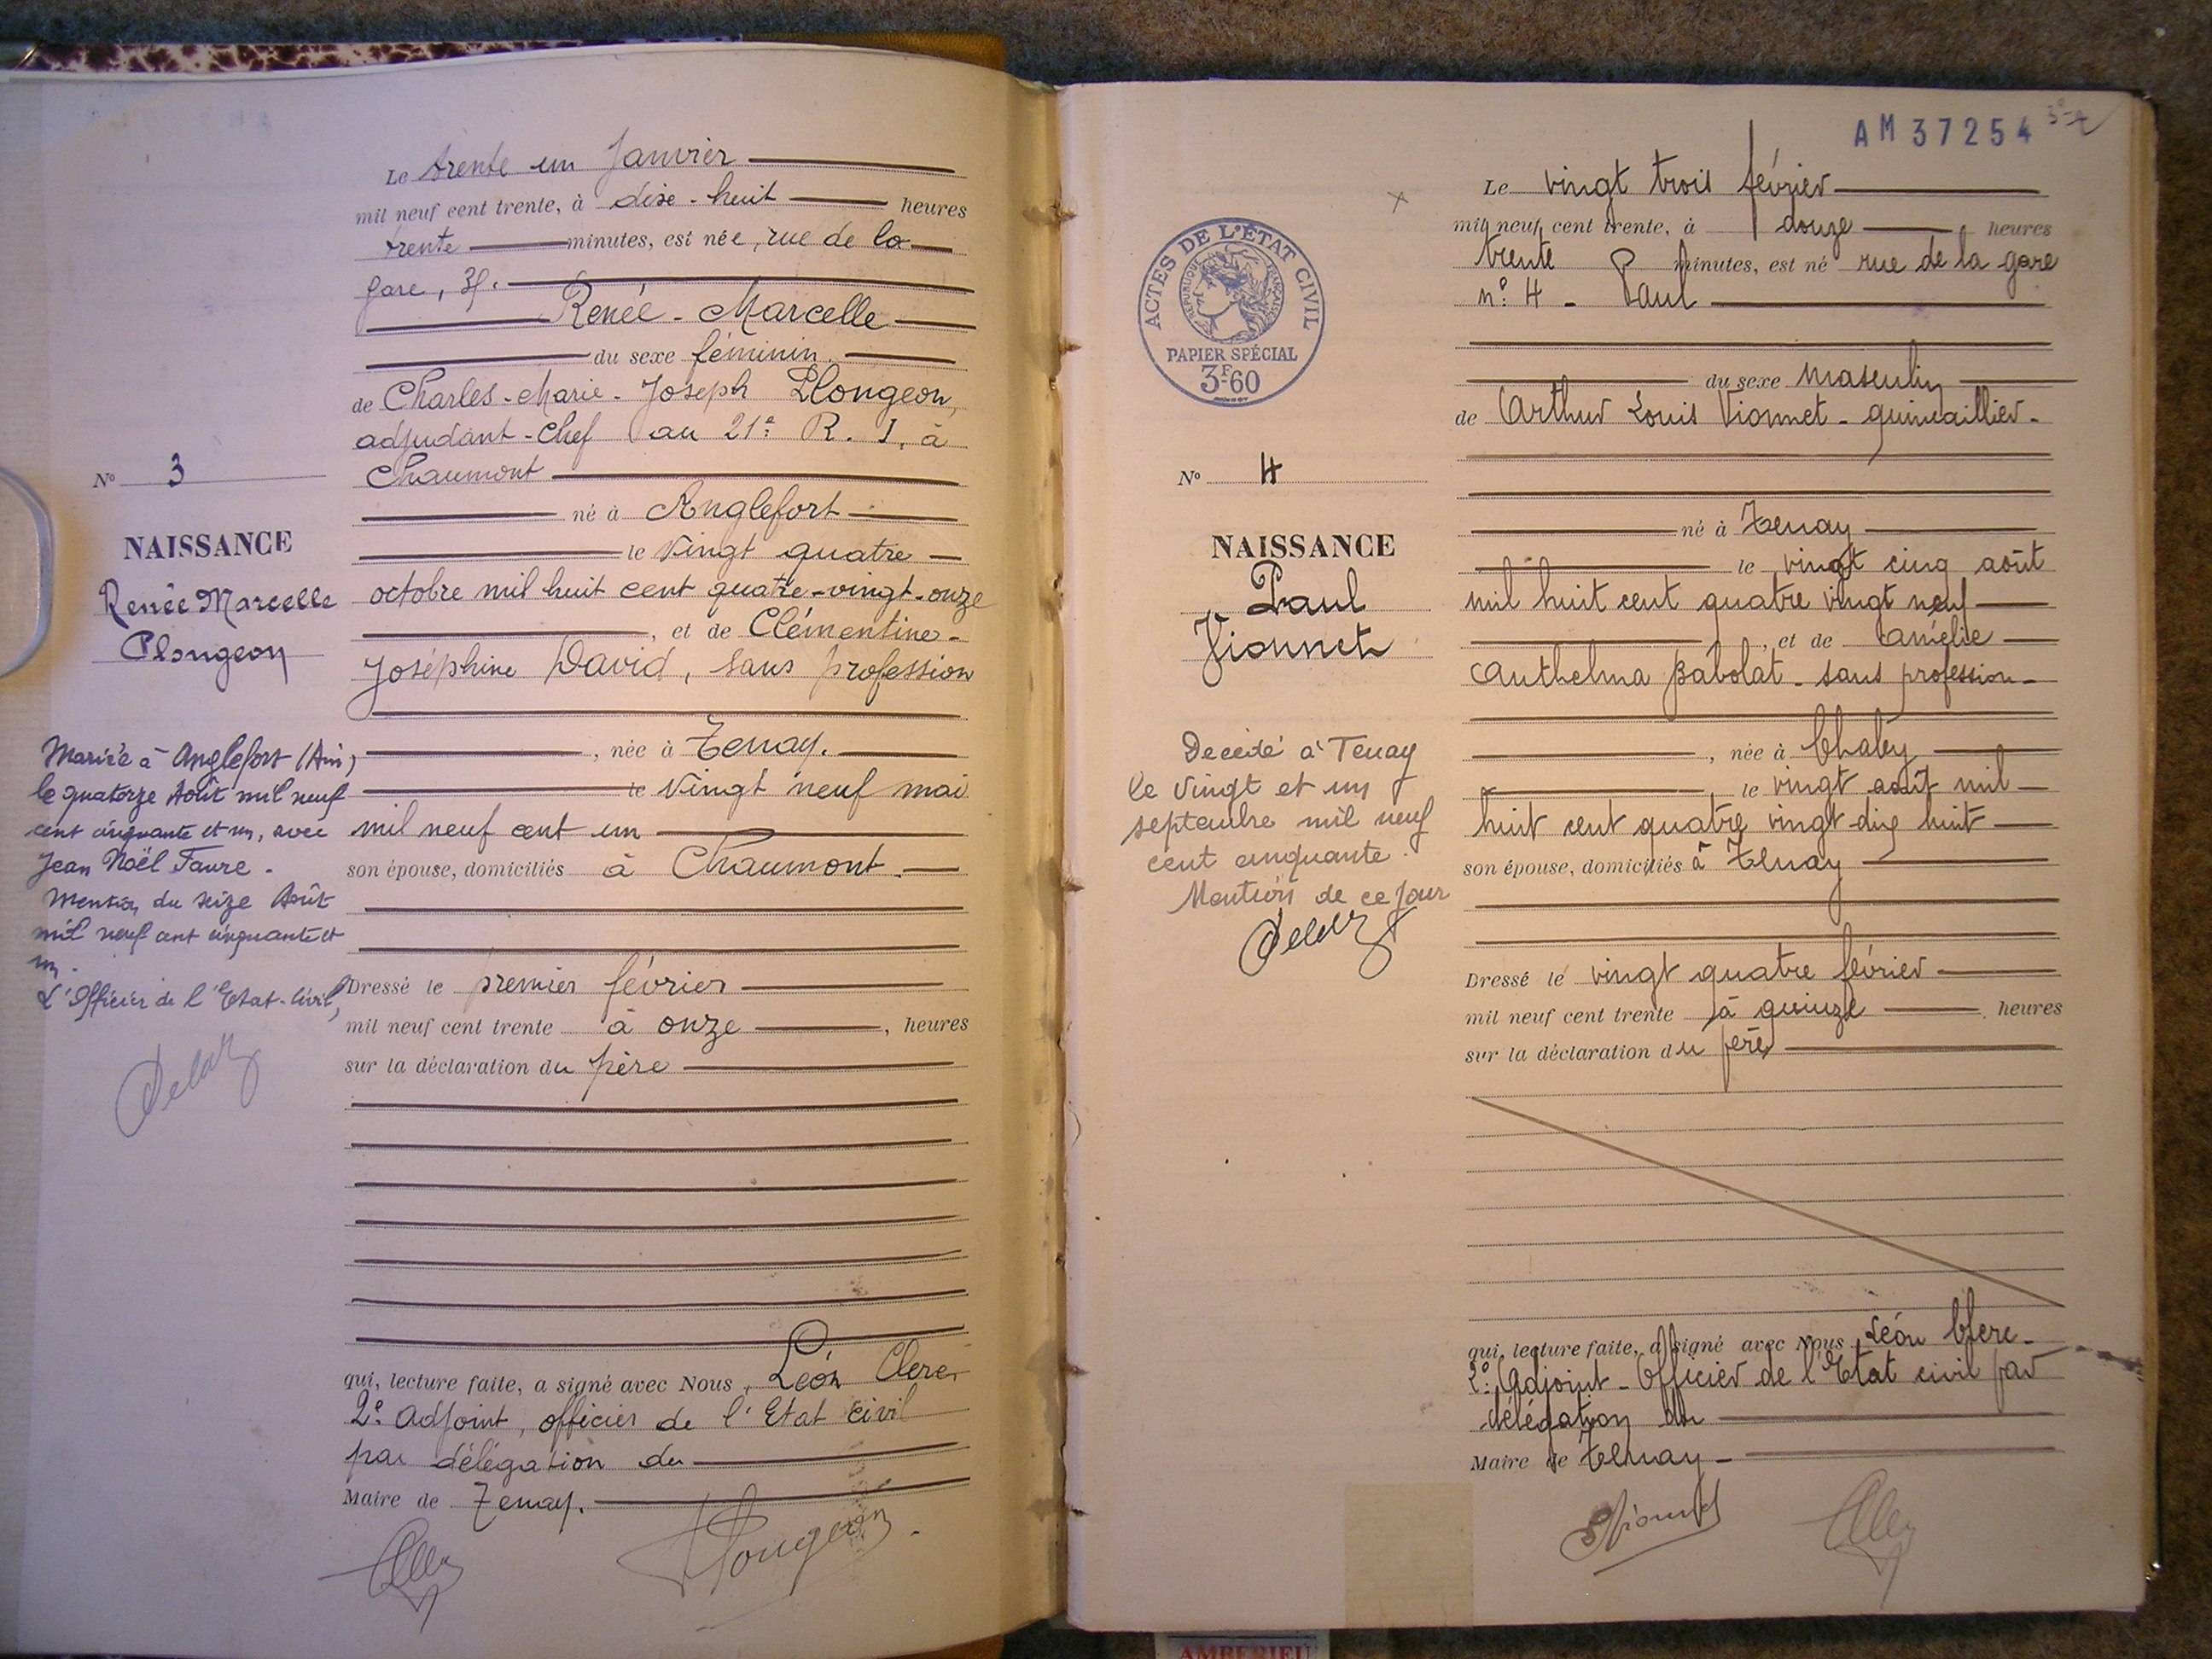 Le trente un Janvier
mil neuf cent trente, à dixe-huit heures
trente minutes, est née, rue de la
gare, 37.
Renée-Marcelle
du sexe féminin.
de Charles-Marie-Joseph Plongeon,
adjudant-chef au 21e R. I. à
Chaumont
né à Anglefort
le vingt quatre
octobre mil huit cent quatre-vingt-onze
, et de Clémentine-
Joséphine David, sans profession
, née à Tenay.
le vingt neuf mai
mil neuf cent un
son épouse, domiciliés à Chaumont.
Dressé le premier février
mil neuf cent trente à onze, heures
sur la déclaration du père
qui, lecture faite, a signé avec Nous, Léon Clerc
2e adjoint, officier de l'Etat civil
par délégation du
Maire de Tenay.
Plongeon
No 3
NAISSANCE
Renée Marcelle
Plongeon
Mariée à Anglefort (Ain)
le quatorze Août mil neuf
cent cinquante et un, avec
Jean Noël Faure.
Mention du seize Août
mil neuf cent cinquante et
un.
L'Officier de l'Etat-Civil,
AM 37254
Le vingt trois février
mil neuf cent trente, à douze heures
trente minutes, est né rue de la gare
n° 4 - Paul
du sexe masculin
de Arthur Louis Vionnet - quincaillier -
né à Tenay
le vingt cinq août
mil huit cent quatre vingt neuf
, et de Amélie
Anthelma Babolat - sans profession -
, née à Chaley
, le vingt août mil
huit cent quatre vingt-dix huit
son épouse, domiciliés à Tenay
Dressé le vingt quatre février
mil neuf cent trente à quinze heures
sur la déclaration du père
qui, lecture faite, a signé avec Nous Léon Clerc -
2e Adjoint - Officier de l'Etat civil par
délégation du
Maire de Tenay -
Vionnet
ACTES DE L'ÉTAT CIVIL
RÉPUBLIQUE FRANÇAISE
PAPIER SPÉCIAL
3F60
No 4
NAISSANCE
Paul
Vionnet
Décédé à Tenay
le vingt et un
septembre mil neuf
cent cinquante.
Mention de ce jour
AMBERIEU